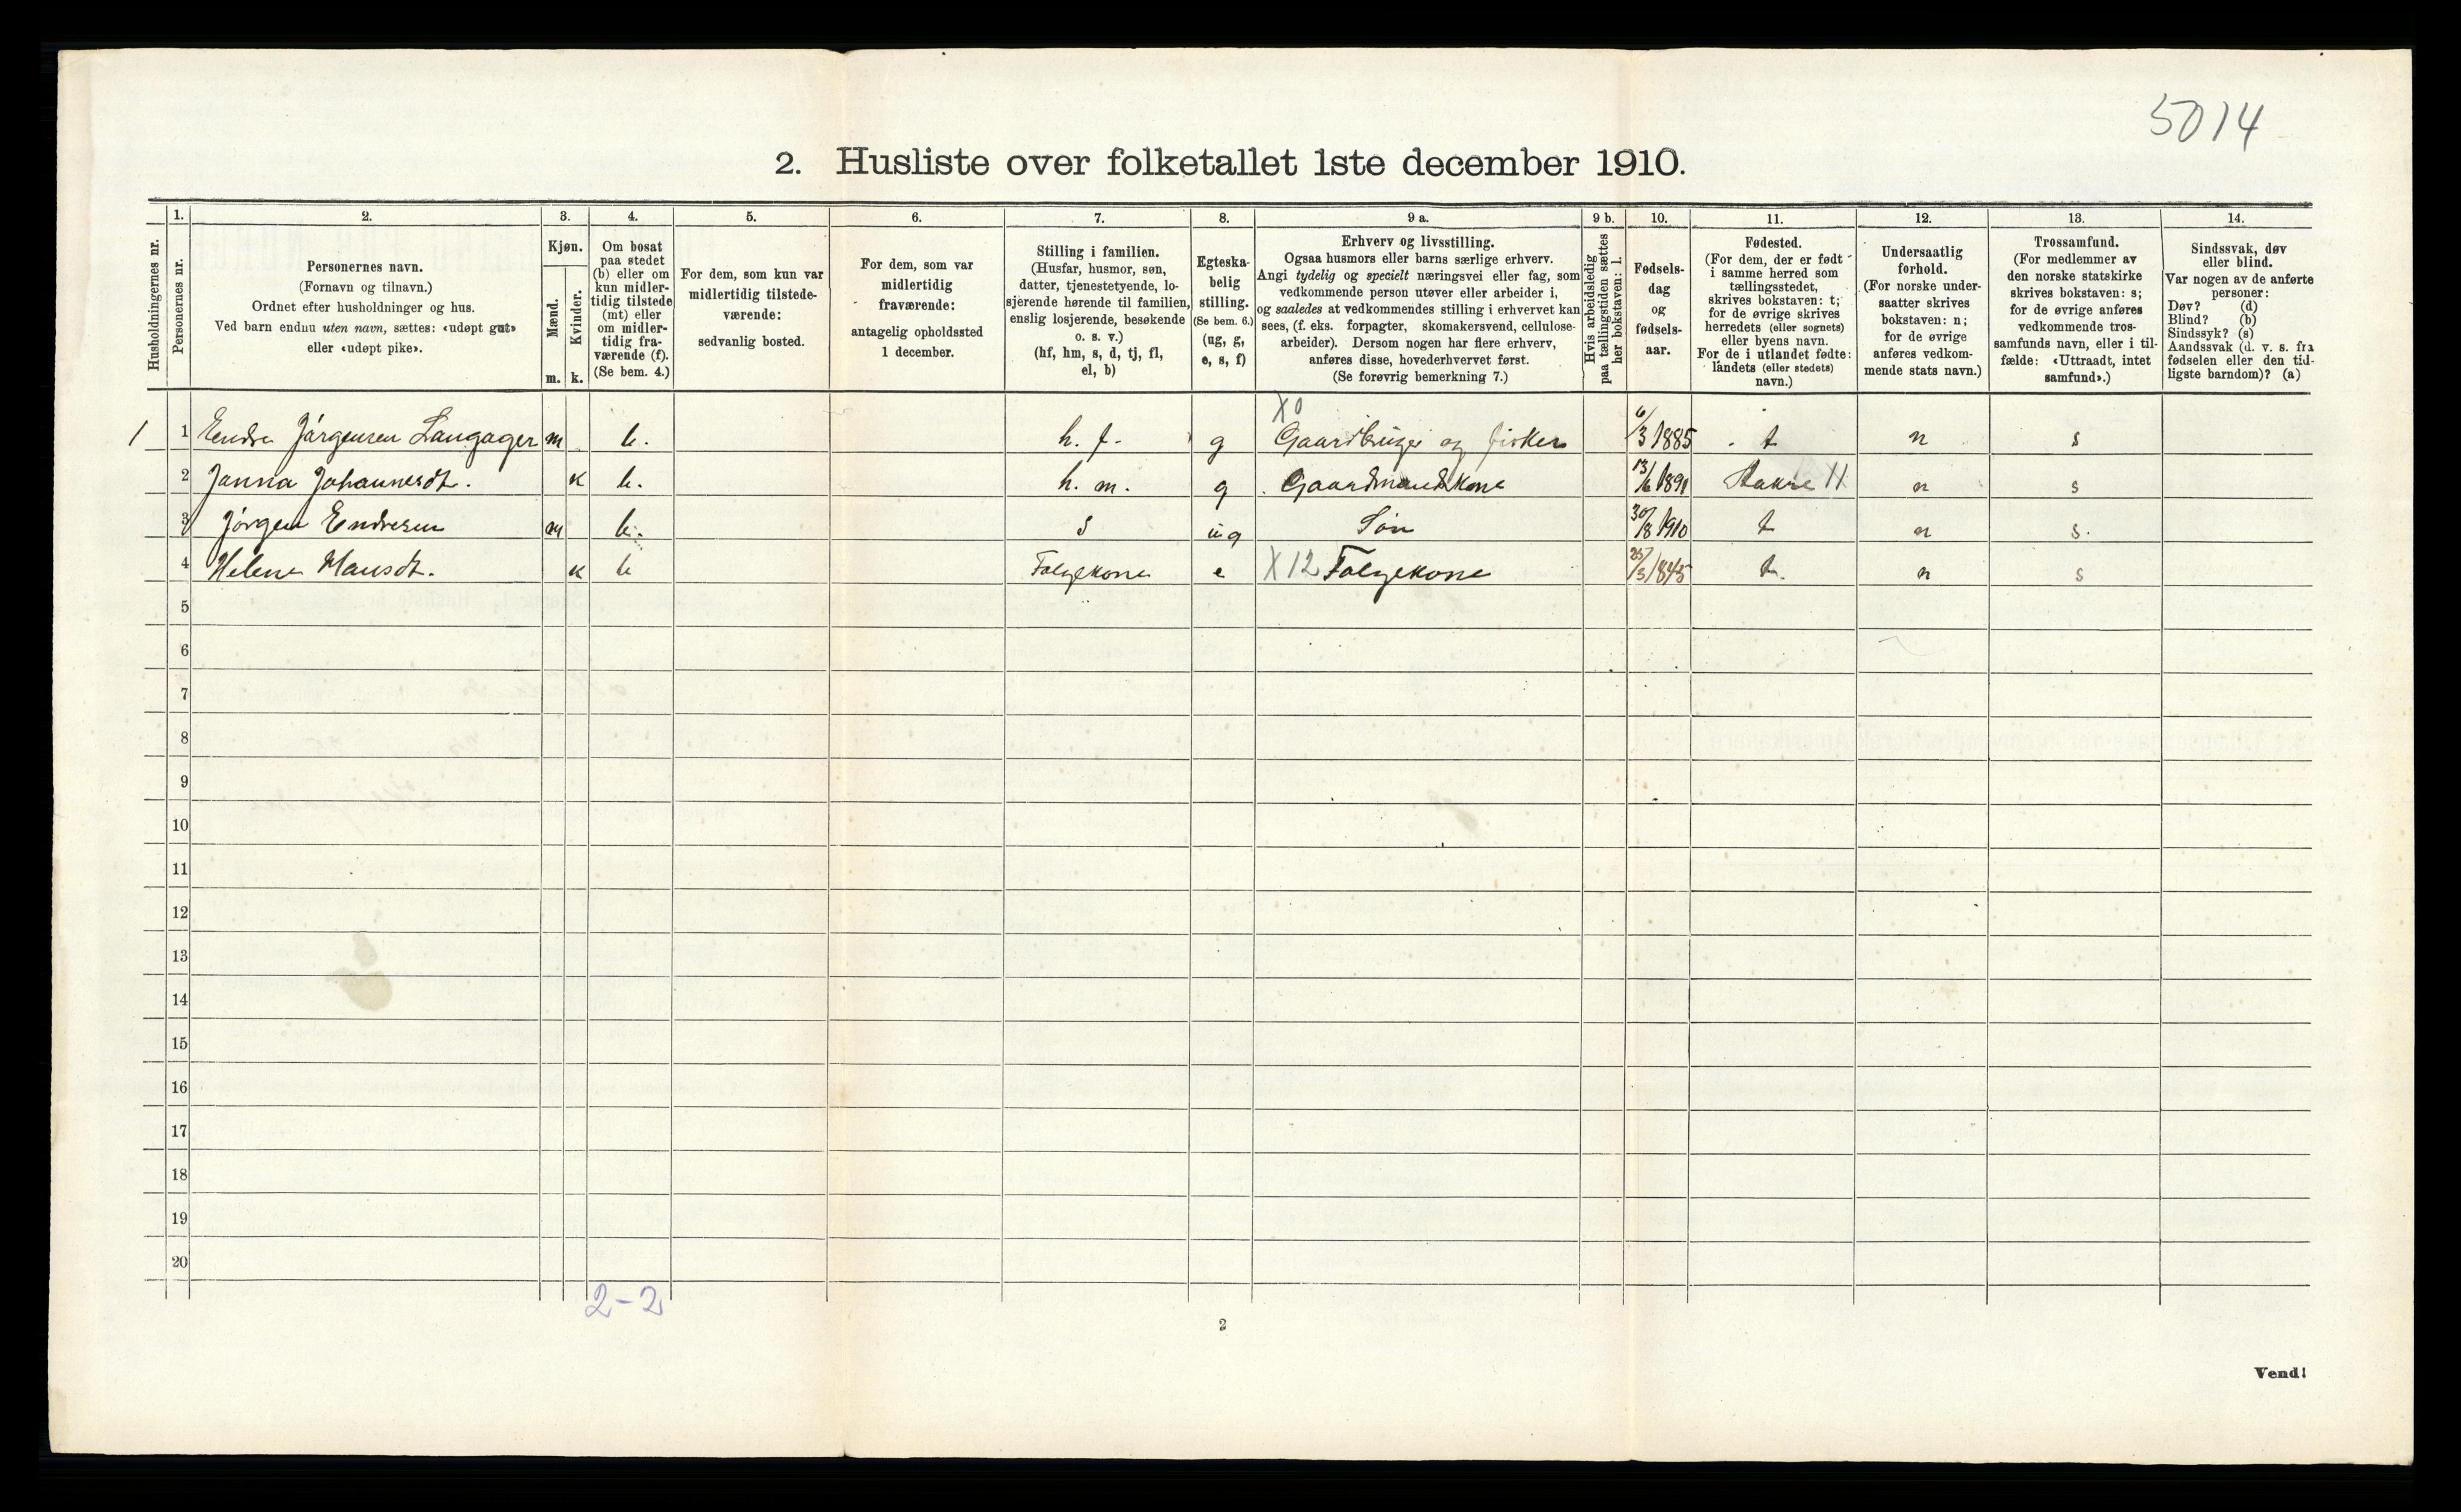 5014
2. Husliste over folketallet 1ste december 1910.
Husholdningernes nr.
1.
Personernes nr.
2.
Personernes navn.
(Fornavn og tilnavn.)
Ordnet efter husholdninger og hus.
Ved barn endnu uten navn, sættes: «udøpt gut»
eller «udøpt pike».
3.
Kjøn.
Mænd.
Kvinder.
m. k.
4.
Om bosat
paa stedet
(b) eller om
kun midler-
tidig tilstede
(mt) eller
om midler-
tidig fra-
værende (f).
(Se bem. 4.)
5.
For dem, som kun var
midlertidig tilstede-
værende:
sedvanlig bosted.
6.
For dem, som var
midlertidig
fraværende:
antagelig opholdssted
1 december.
7.
Stilling i familien.
(Husfar, husmor, søn,
datter, tjenestetyende, lo-
sjerende hørende til familien,
enslig losjerende, besøkende
o. s. v.)
(hf, hm, s, d, tj, fl,
el, b)
8.
Egteska-
belig
stilling.
(Se bem. 6.)
(ug, g,
e, s, f)
9 a.
Erhverv og livsstilling.
Ogsaa husmors eller barns særlige erhverv.
Angi tydelig og specielt næringsvei eller fag, som
vedkommende person utøver eller arbeider i,
og saaledes at vedkommendes stilling i erhvervet kan
sees, (f. eks. forpagter, skomakersvend, cellulose-
arbeider). Dersom nogen har flere erhverv,
anføres disse, hovederhvervet først.
(Se forøvrig bemerkning 7.)
9 b.
Hvis arbeidsledig
paa tællingstiden sættes
her bokstaven: l.
10.
Fødsels-
dag
og
fødsels-
aar.
11.
Fødested.
(For dem, der er født
i samme herred som
tællingsstedet,
skrives bokstaven: t;
for de øvrige skrives
herredets (eller sognets)
eller byens navn.
For de i utlandet fødte:
landets (eller stedets)
navn.)
12.
Undersaatlig
forhold.
(For norske under-
saatter skrives
bokstaven: n;
for de øvrige
anføres vedkom-
mende stats navn.)
13.
Trossamfund.
(For medlemmer av
den norske statskirke
skrives bokstaven: s;
for de øvrige anføres
vedkommende tros-
samfunds navn, eller i til-
fælde: «Uttraadt, intet
samfund».)
14.
Sindssvak, døv
eller blind.
Var nogen av de anførte
personer:
Døv? (d)
Blind? (b)
Sindssyk? (s)
Aandssvak (d. v. s. fra
fødselen eller den tid-
ligste barndom)? (a)
X0
1 1 Endre Jørgensen Langager m b. h. f. g Gaardbruger og fisker 6/3 1885 t n s
2 Janna Johannesdt. k b. h. m. g Gaardmandskone 13/6 1891 n s
3 Jørgen Endresen m b. s ug Søn 30/8 1910 t n s.
4 Helene Hansdt. k b Følgekone e X12 Følgekone 25/3 1845 t. n s
5
6
7
8
9
10
11
12
13
14
15
16
17
18
19
20
2-2
2
Vend!